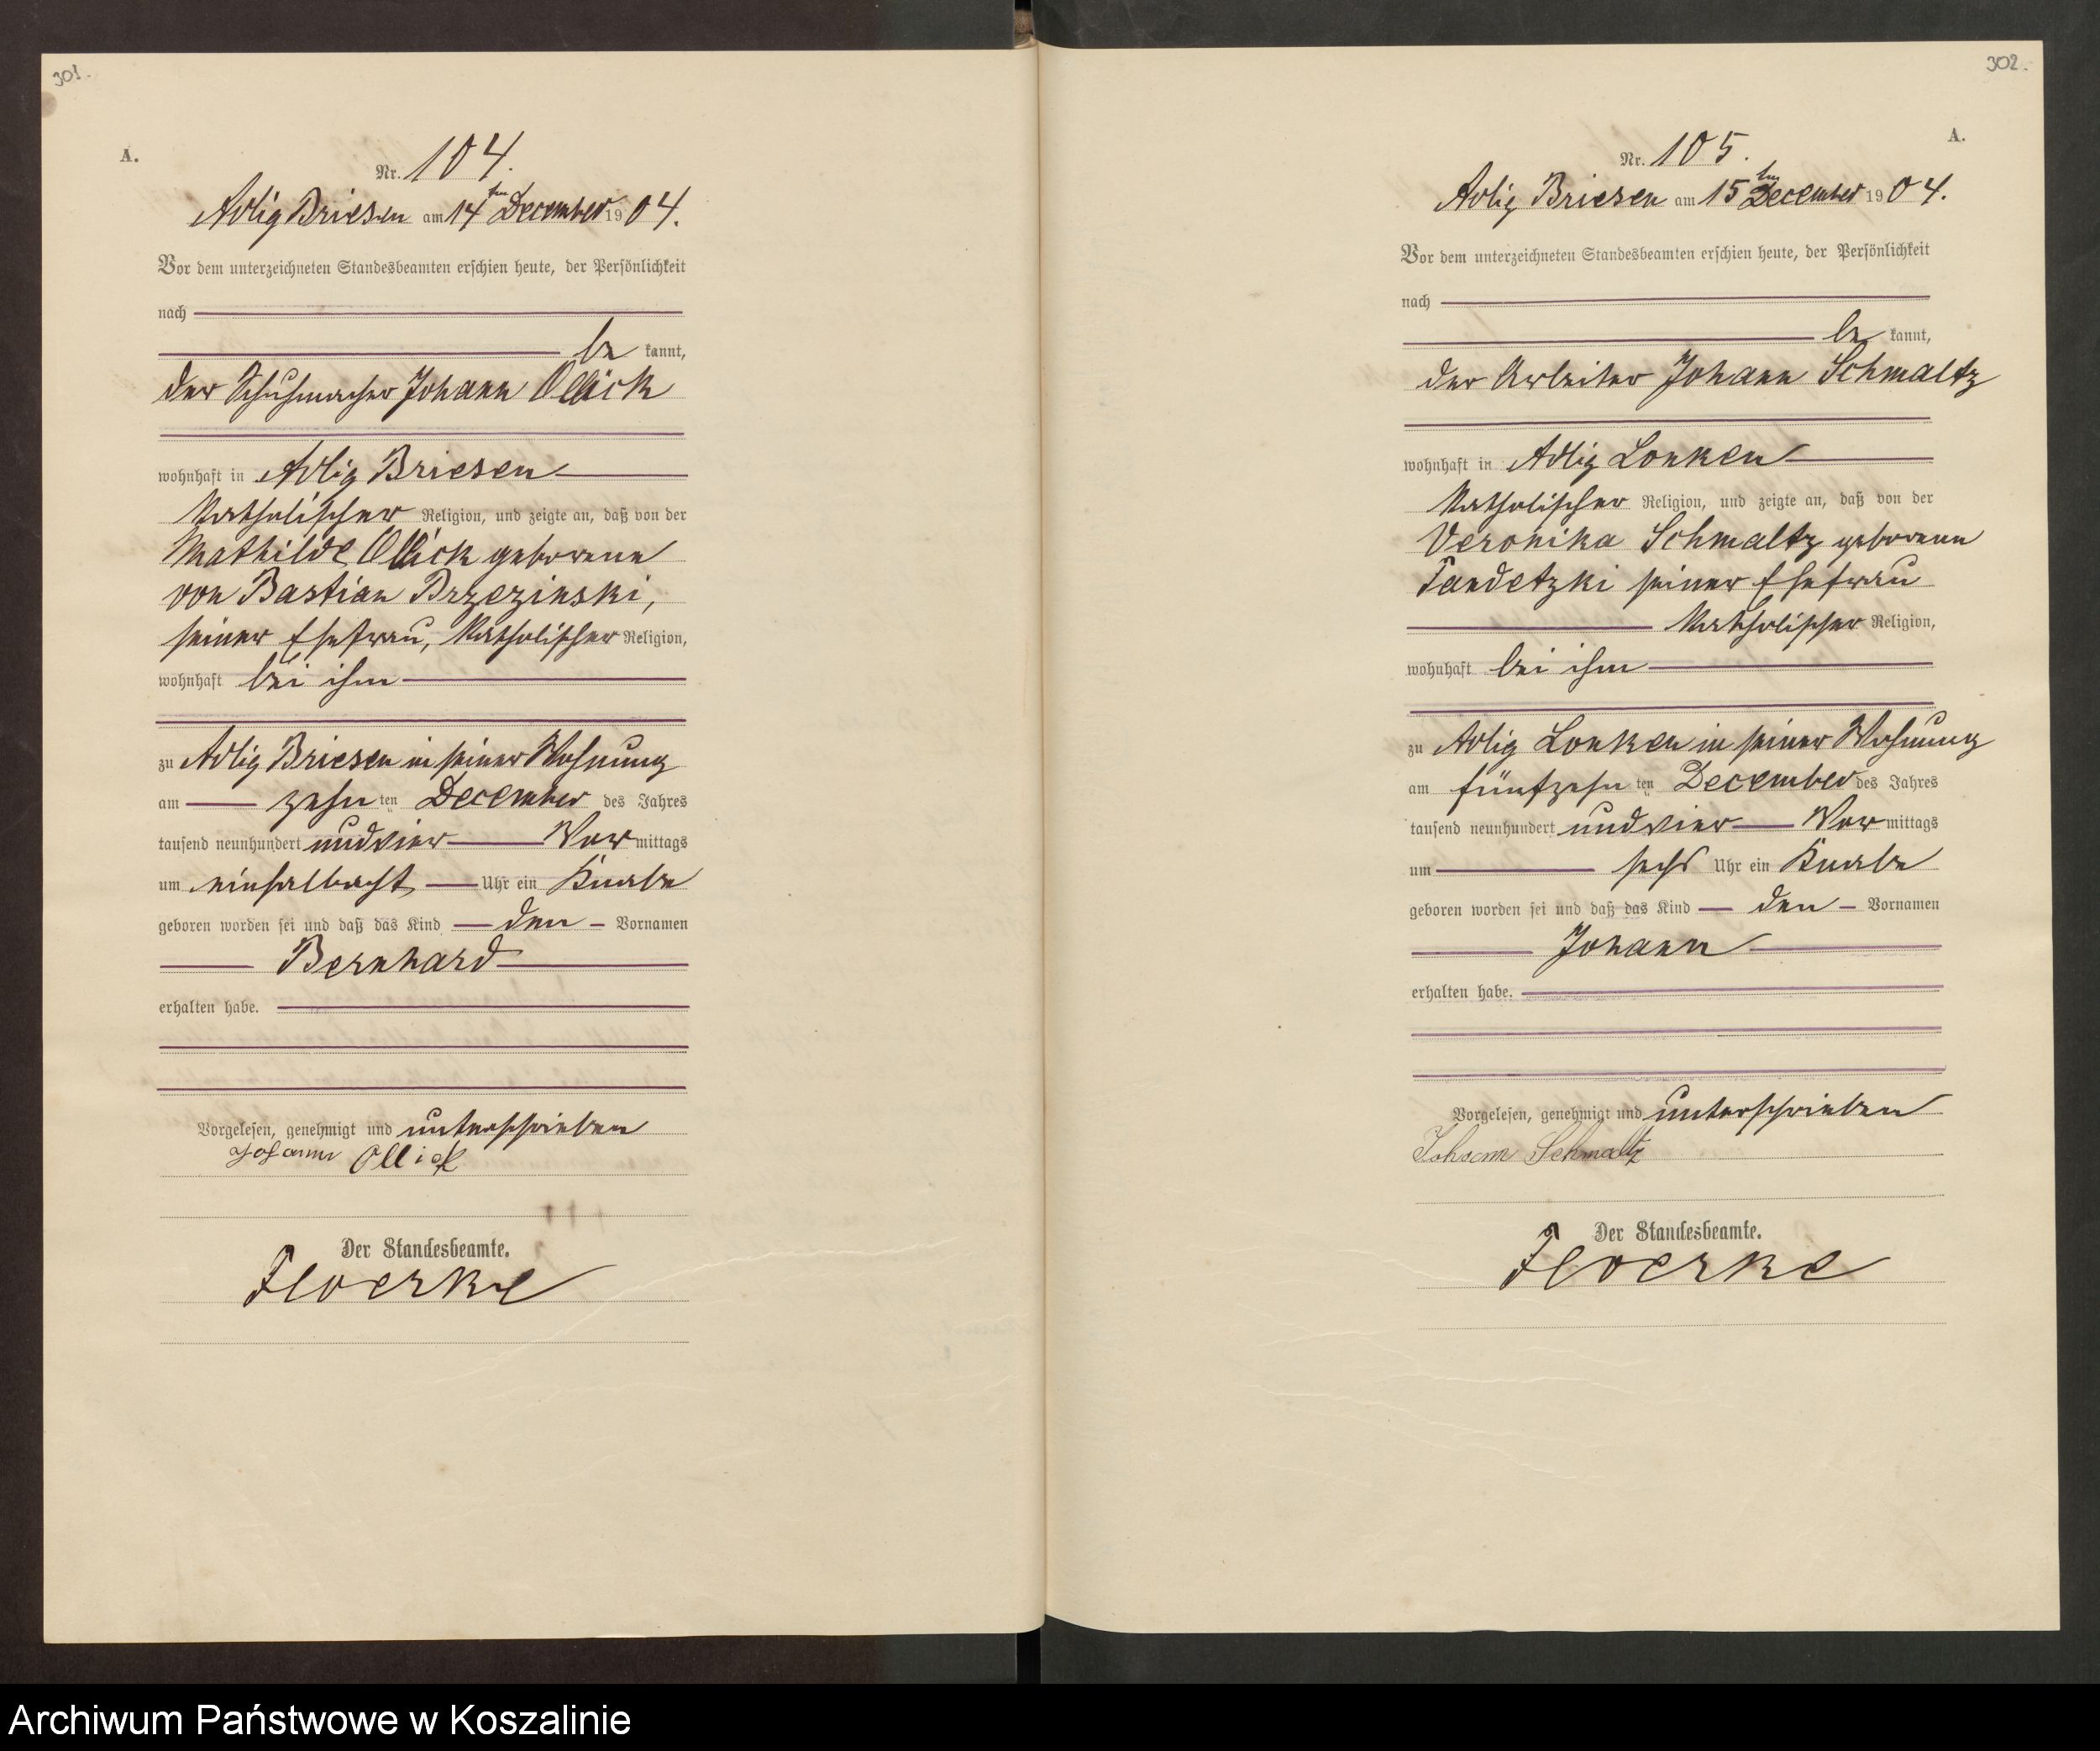 301.
A.
Nr. 104.
Adlig Briesen am 14ten December 1904.
Vor dem unterzeichneten Standesbeamten erschien heute, der Persönlichkeit
nach
be kannt,
der Schuhmacher Johann Ollick
wohnhaft in Adlig Briesen
katholischer Religion, und zeigte an, daß von der
Mathilde Ollick geborene
von Bastian Brzezinski,
seiner Ehefrau, katholischer Religion,
wohnhaft bei ihm
zu Adlig Briesen in seiner Wohnung
am zehn ten December des Jahres
tausend neunhundert und vier Vor mittags
um einhalbacht Uhr ein Knabe
geboren worden sei und daß das Kind den Vornamen
Bernhard
erhalten habe.
Vorgelesen, genehmigt und unterschrieben
Johann Ollick
Der Standesbeamte.
Floerke
302.
A.
Nr. 105.
Adlig Briesen am 15ten December 1904.
Vor dem unterzeichneten Standesbeamten erschien heute, der Persönlichkeit
nach
be kannt,
der Arbeiter Johann Schmaltz
wohnhaft in Adlig Lonken
katholischer Religion, und zeigte an, daß von der
Veronika Schmaltz geborenen
Pandetzki seiner Ehefrau
katholischer Religion,
wohnhaft bei ihm
zu Adlig Lonken in seiner Wohnung
am fünfzehn ten December des Jahres
tausend neunhundert und vier Vor mittags
um sechs Uhr ein Knabe
geboren worden sei und daß das Kind den Vornamen
Johann
erhalten habe.
Vorgelesen, genehmigt und unterschrieben
Johann Schmaltz
Der Standesbeamte.
Floerke
Archiwum Państwowe w Koszalinie